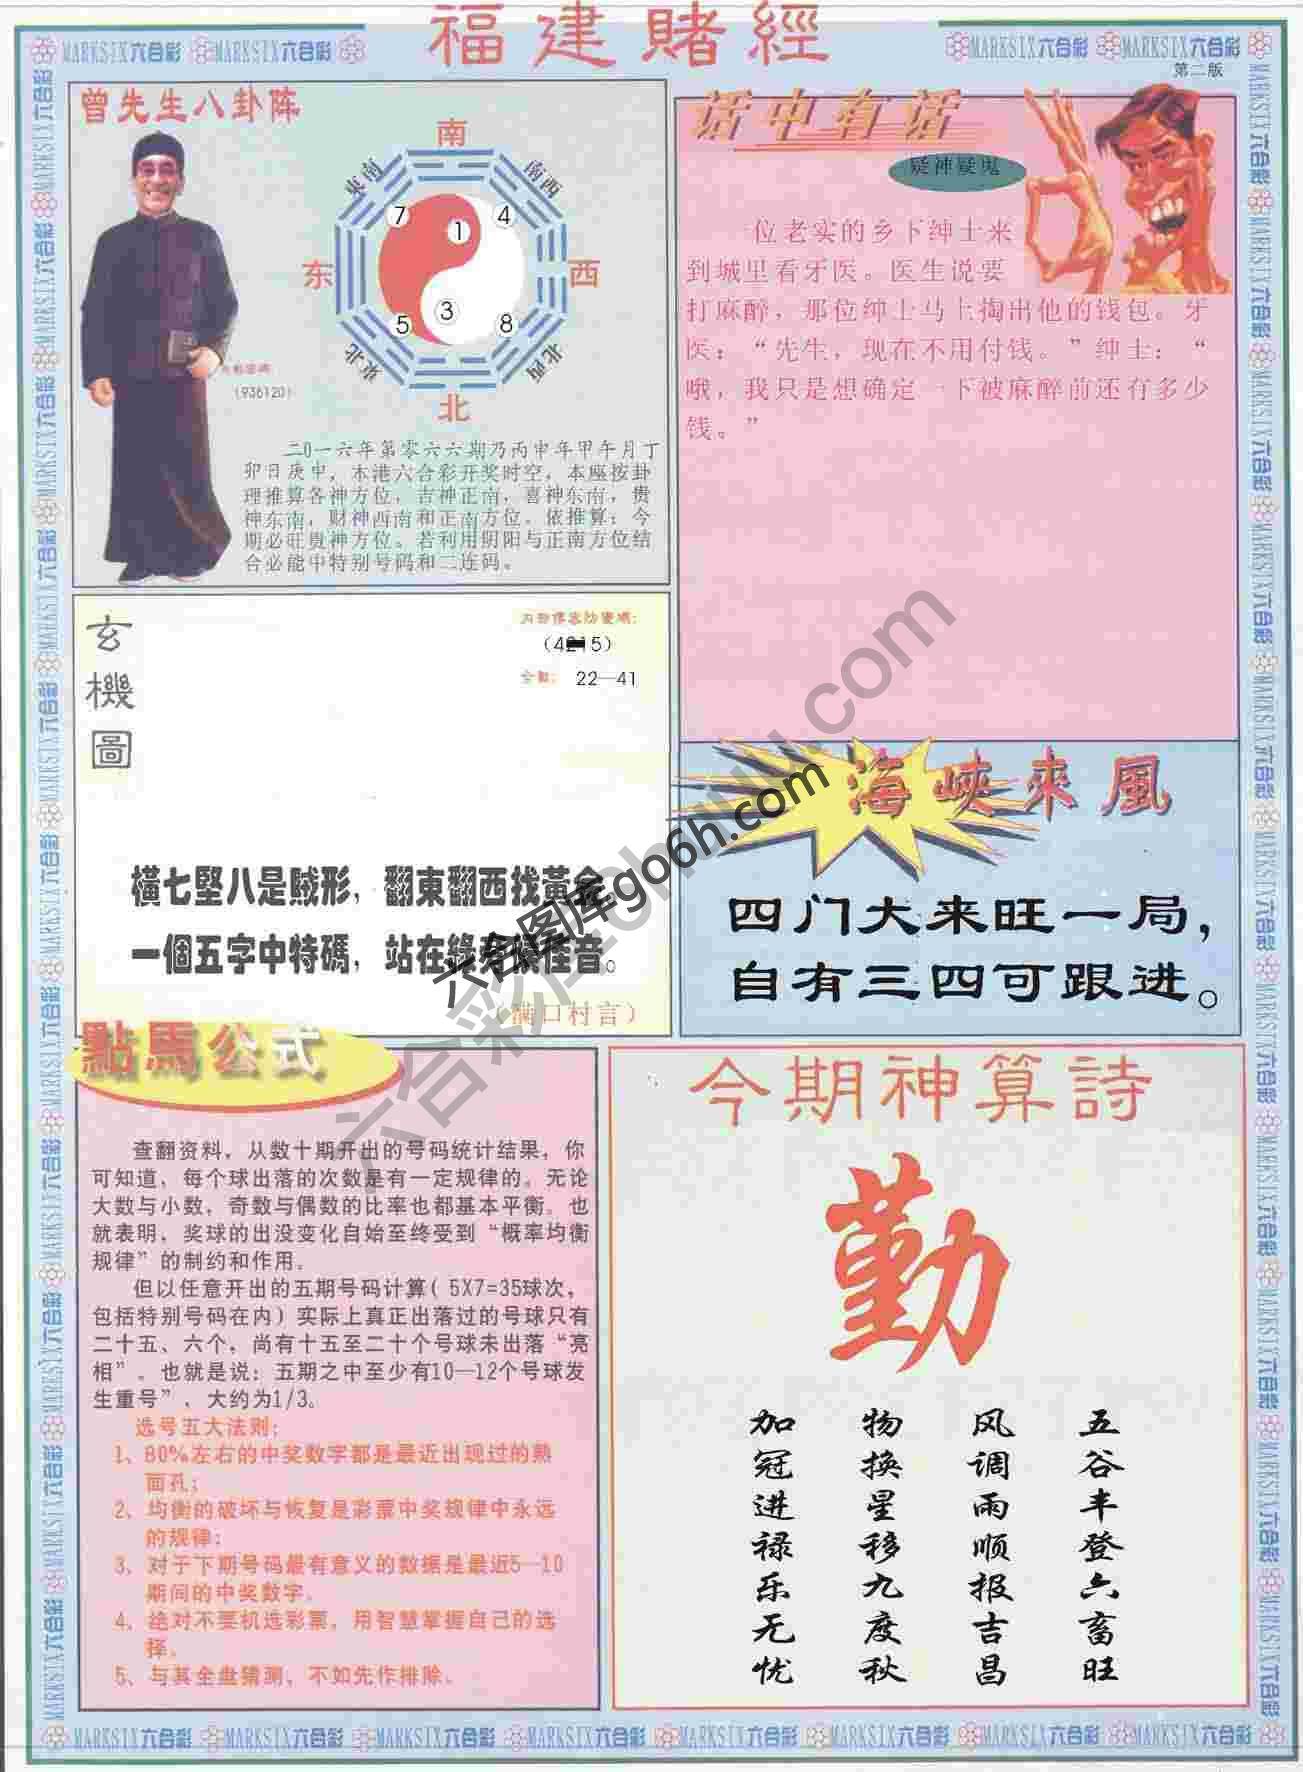 福建賭經
MARKSIX六合彩 MARKSIX六合彩
MARKSIX六合彩 MARKSIX六合彩
第二版
曾先生八卦阵
南
東南
南西
7
1
4
东
西
5
3
8
東北
北西
北
(936120)
二0一六年第零六六期乃丙申年甲午月丁
卯日庚申，本港六合彩开奖时空，本座按卦
理推算各神方位，吉神正南，喜神东南，贵
神东南，财神西南和正南方位。依推算：今
期必旺贵神方位。若利用阴阳与正南方位结
合必能中特别号码和二连码。
话中有话
疑神疑鬼
位老实的乡下绅士来
到城里看牙医。医生说要
打麻醉，那位绅士马上掏出他的钱包。牙
医：“先生，现在不用付钱。”绅士：“
哦，我只是想确定一下被麻醉前还有多少
钱。”
玄機圖
22—41
橫七堅八是賊形，翻東翻西找黃金
一個五字中特碼，站在綠 音。
（满口村言）
海峽來風
四门大来旺一局，
自有三四可跟进。
六合图库go6h.com
點馬公式
查翻资料，从数十期开出的号码统计结果，你
可知道，每个球出落的次数是有一定规律的。无论
大数与小数，奇数与偶数的比率也都基本平衡。也
就表明，奖球的出没变化自始至终受到“概率均衡
规律”的制约和作用。
但以任意开出的五期号码计算( 5X7=35球次，
包括特别号码在内）实际上真正出落过的号球只有
二十五、六个，尚有十五至二十个号球未出落“亮
相”。也就是说：五期之中至少有10—12个号球发
生重号”，大约为1/3。
选号五大法则：
1、80%左右的中奖数字都是最近出现过的熟
面孔；
2、均衡的破坏与恢复是彩票中奖规律中永远
的规律；
3、对于下期号码最有意义的数据是最近5—10
期间的中奖数字。
4、绝对不要机选彩票，用智慧掌握自己的选
择。
5、与其全盘猜测，不如先作排除。
今期神算詩
勤
五谷丰登六畜旺
风调雨顺报吉昌
物换星移九度秋
加冠进禄乐无忧
MARKSIX六合彩 MARKSIX六合彩 MARKSIX六合彩 MARKSIX六合彩 MARKSIX六合彩 MARKSIX六合彩 MARKSIX六合彩 MARKSIX六合彩